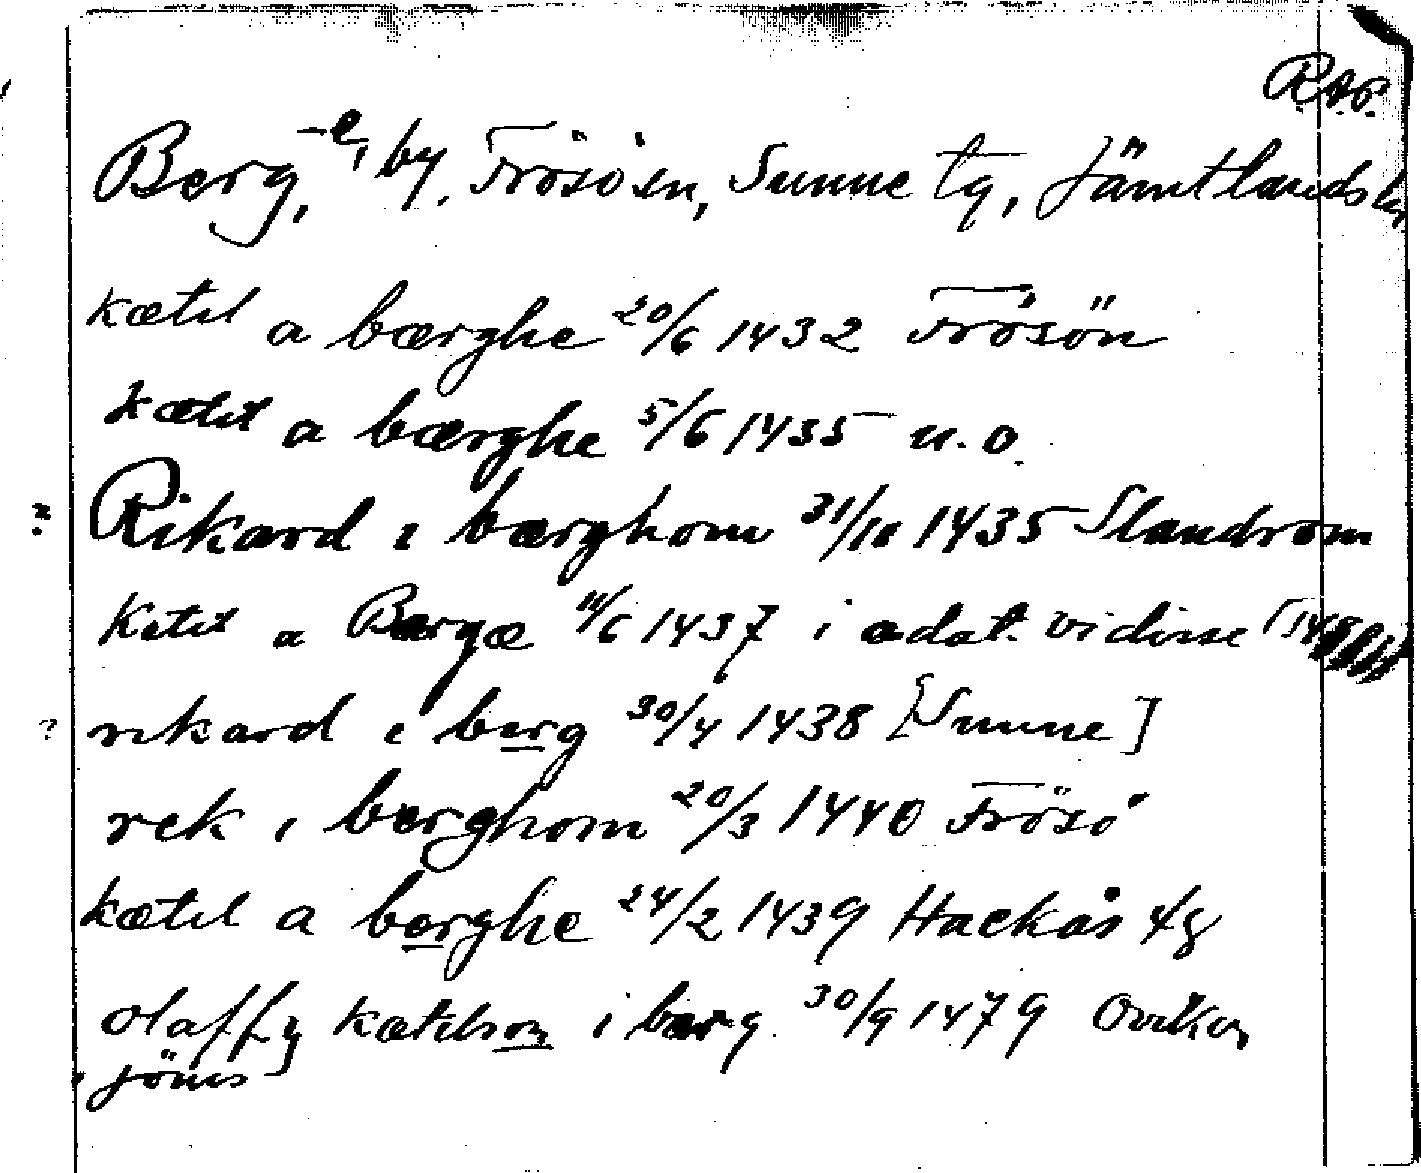 R.Ap.
Berg, -e, by, Frösön, Sunne tg, Jämtlands län
kætil a bærghe 20/6 1432 Frösön
kætil a bærghe 5/6 1435 u.o.
? Rikard i bærghom 31/10 1435 Slandrom
Ketil a Bergæ 11/6 1437 i odat. vidisse
? rikard i berg 30/4 1438 [Sunne]
rek i berghom 20/3 1440 Frösö
kætil a berghe 24/2 1439 Hackås tg
olaff kætilson i berg 30/9 1479 Oviken
jöns